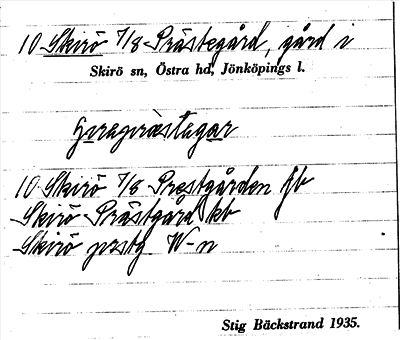 10 Skirö 7/8 Prästegård, gård i
Skirö sn, Östra hd, Jönköpings l.
10 Skirö 7/8 Prestgården Jb
Skirö Prästgård kb
Skirö prstg W-n
Stig Bäckstrand 1935.